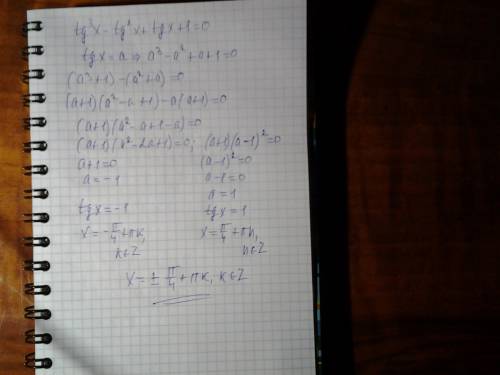 tg³x - tg²x + tgx + 1 = 0
tgx = a ⇒ a³ - a² + a + 1 = 0
(a³+1) - (a²+a) = 0
(a+1)(a² - a + 1) - a(a+1) = 0
(a+1)(a² - a + 1 - a) = 0
(a+1)(a² - 2a + 1) = 0; (a+1)(a-1)² = 0
a+1 = 0 (a-1)² = 0
a = -1 a-1 = 0
a = 1
tgx = -1 tgx = 1
x = -π/4 + πk, x = π/4 + πn,
k∈Z n∈Z
x = ± π/4 + πk, k∈Z